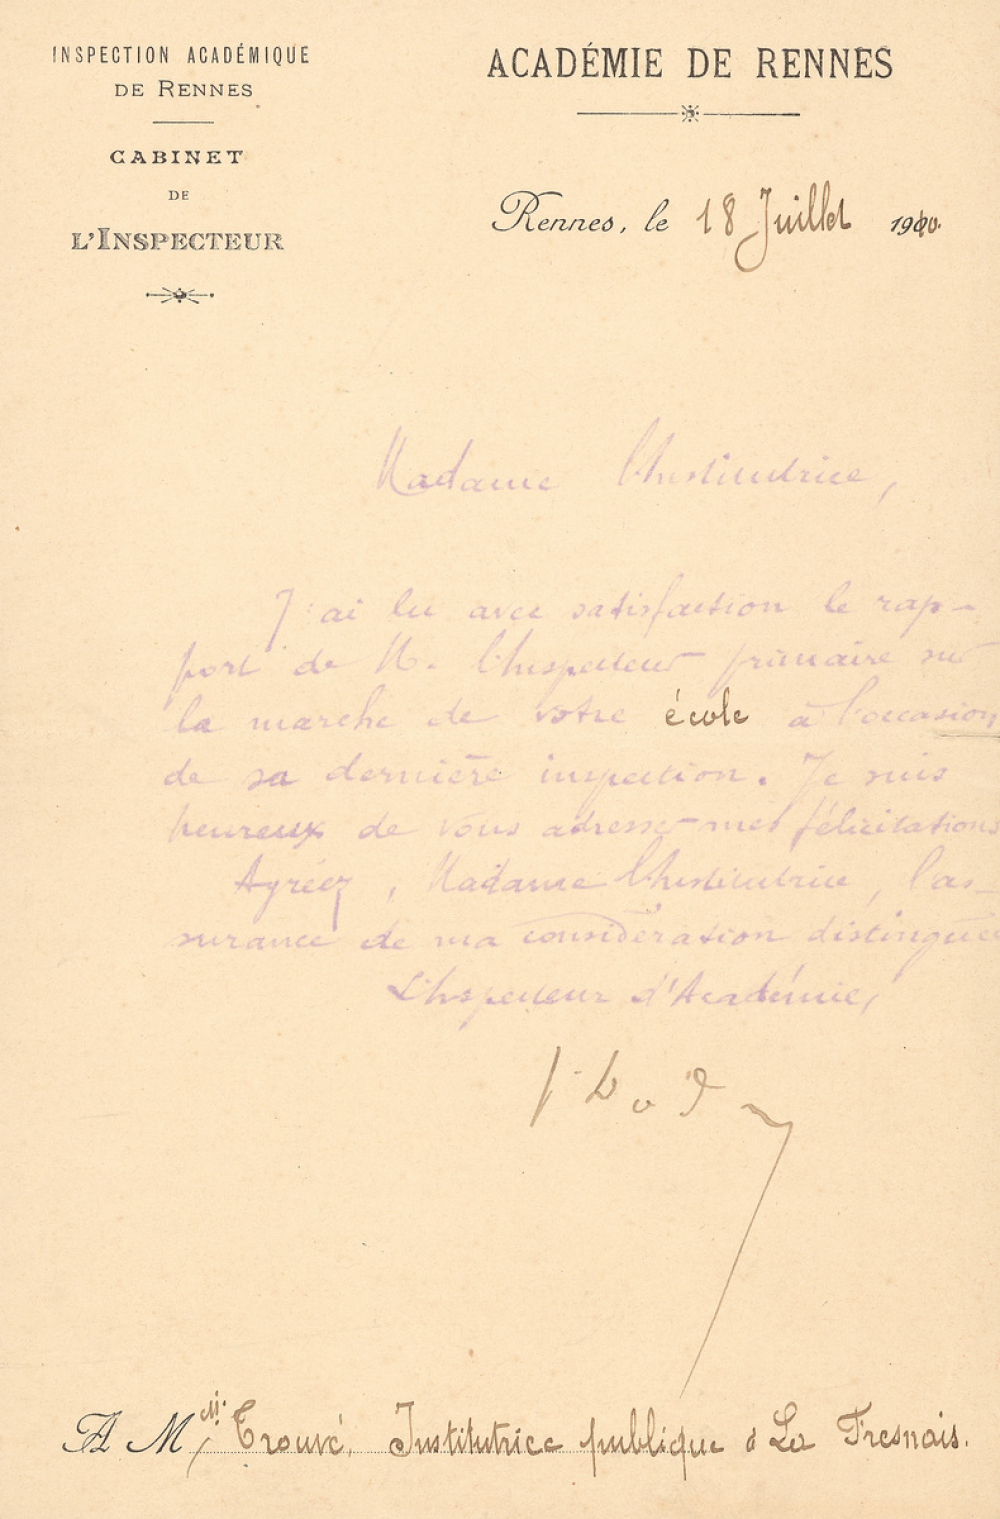 INSPECTION ACADÉMIQUE
DE RENNES
CABINET
DE
L'INSPECTEUR
ACADÉMIE DE RENNES
Rennes, le 18 Juillet 1910.
Madame l'Institutrice,
J'ai lu avec satisfaction le rap-
port de M. l'Inspecteur primaire sur
la marche de votre école à l'occasion
de sa dernière inspection. Je suis
heureux de vous adresser mes félicitations
Agréez, Madame l'Institutrice, l'as-
surance de ma considération distinguée
L'Inspecteur d'Académie,
A Melle Trouvé, Institutrice publique à La Fresnais.